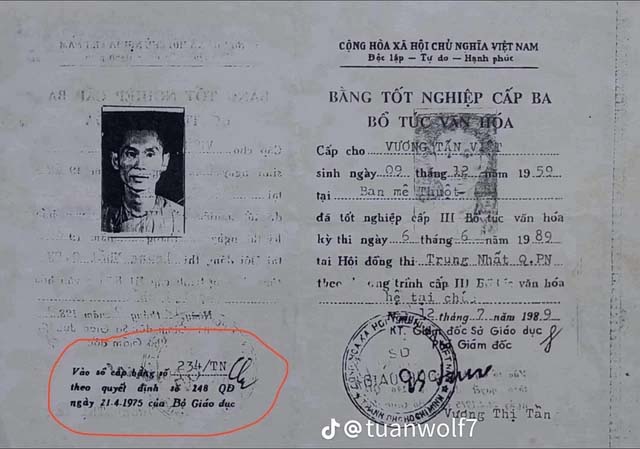 CỘNG HÒA XÃ HỘI CHỦ NGHĨA VIỆT NAM
Độc lập — Tự do — Hạnh phúc
BẰNG TỐT NGHIỆP CẤP BA
BỔ TÚC VĂN HÓA
Cấp cho VƯƠNG TẤN VIỆT
sinh ngày 09 tháng 12 năm 1959
tại Ban mê Thuột
đã tốt nghiệp cấp III Bổ túc văn hóa
kỳ thi ngày 6 tháng 6 năm 1989
tại Hội đồng thi Trung Nhất Q.PN
theo chương trình cấp III Bổ túc văn hóa
hệ tại chức
12 tháng 7 năm 1989
KT. Giám đốc Sở Giáo dục
Phó Giám đốc
SỞ
GIÁO DỤC
Vương Thị Tần
Vào sổ cấp bằng số 234/TN
theo quyết định số 248 QĐ
ngày 21.4.1975 của Bộ Giáo dục
@tuanwolf7